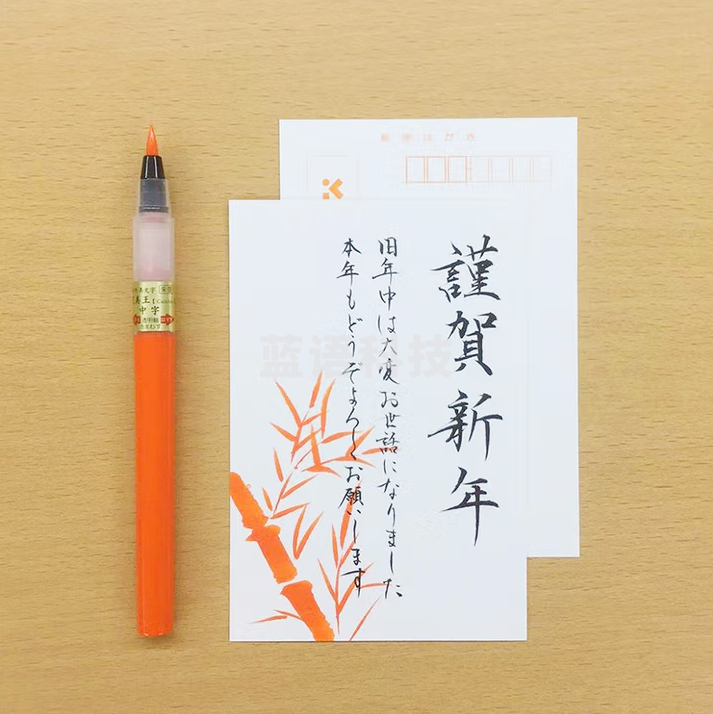 謹賀新年
旧年中は大変お世話になりました
本年もどうぞよろしくお願いします
郵便はがき
中字
蓝语科技